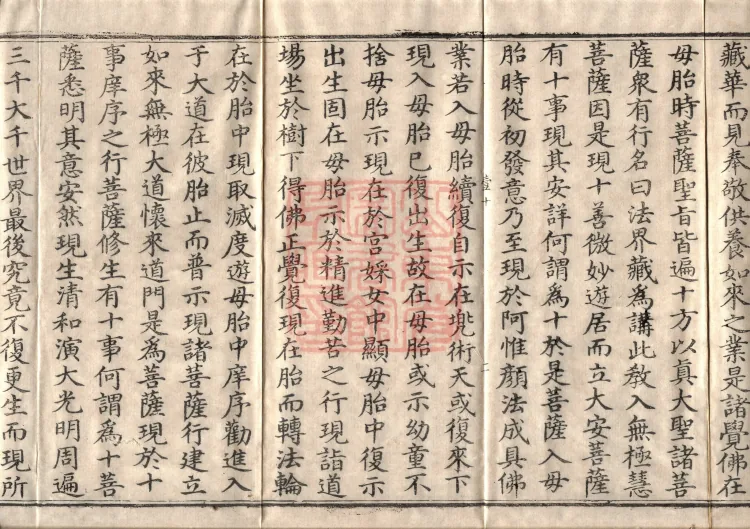 藏華而見奉敬供養如來之業是諸覺佛在
毋胎時菩薩聖旨皆遍十方以真大聖諸菩
薩衆有行名曰法界藏為講此教入無極慧
菩薩因是現十善微妙遊居而立大安菩薩
有十事現其安詳何謂為十於是菩薩入毋
胎時從初發意乃至現於阿惟顏法成具佛
業若入毋胎續復自示在兠術天或復來下
現入毋胎已復出生故在毋胎或示幼童不
捨毋胎示現在於宮婇女中顯毋胎中復示
出生固在毋胎示於精進勤苦之行現詣道
場坐於樹下得佛正覺復現在胎而轉法輪
在於胎中現取滅度遊毋胎中庠序勸進入
于大道在彼胎止而普示現諸菩薩行建立
如來無極大道懷來道門是為菩薩現於十
事庠序之行菩薩修生有十事何謂為十菩
薩悉明其意安然現生清和演大光明周遍
三千大千世界最後究竟不復更生而現所